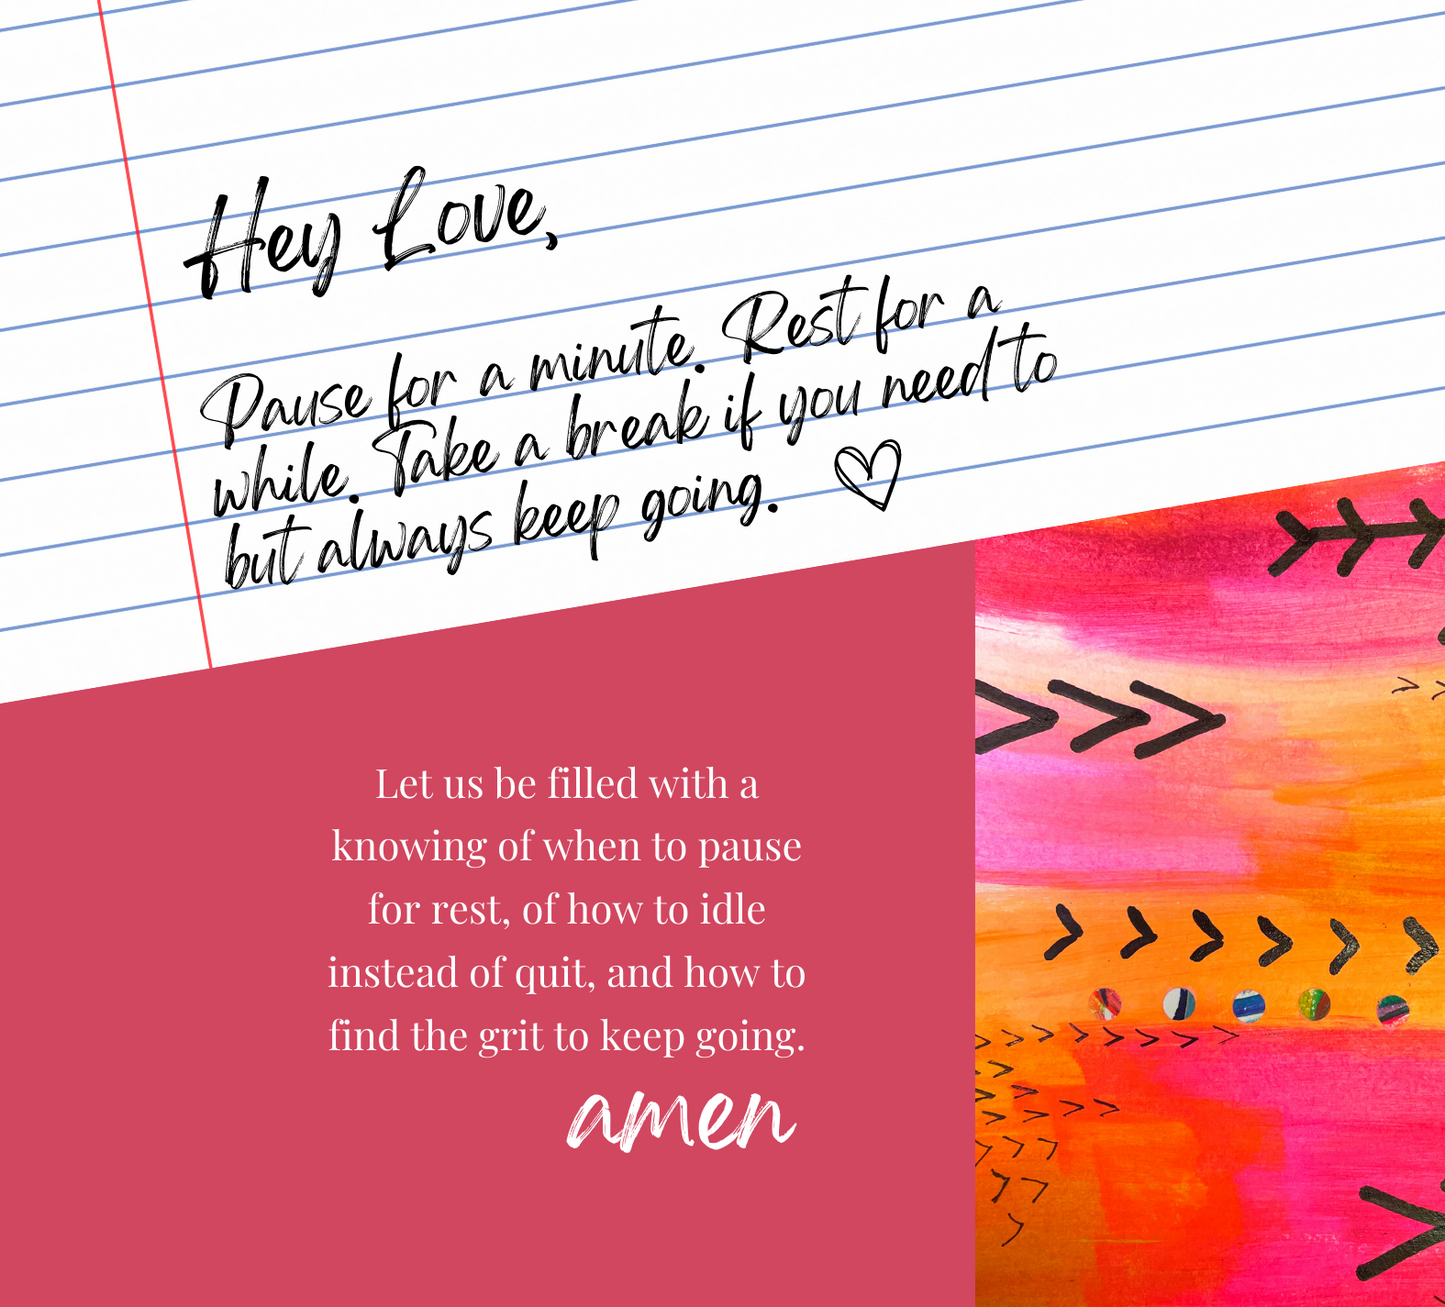 Hey Love,
Pause for a minute. Rest for a
while. Take a break if you need to
but always keep going.
Let us be filled with a
knowing of when to pause
for rest, of how to idle
instead of quit, and how to
find the grit to keep going.
amen